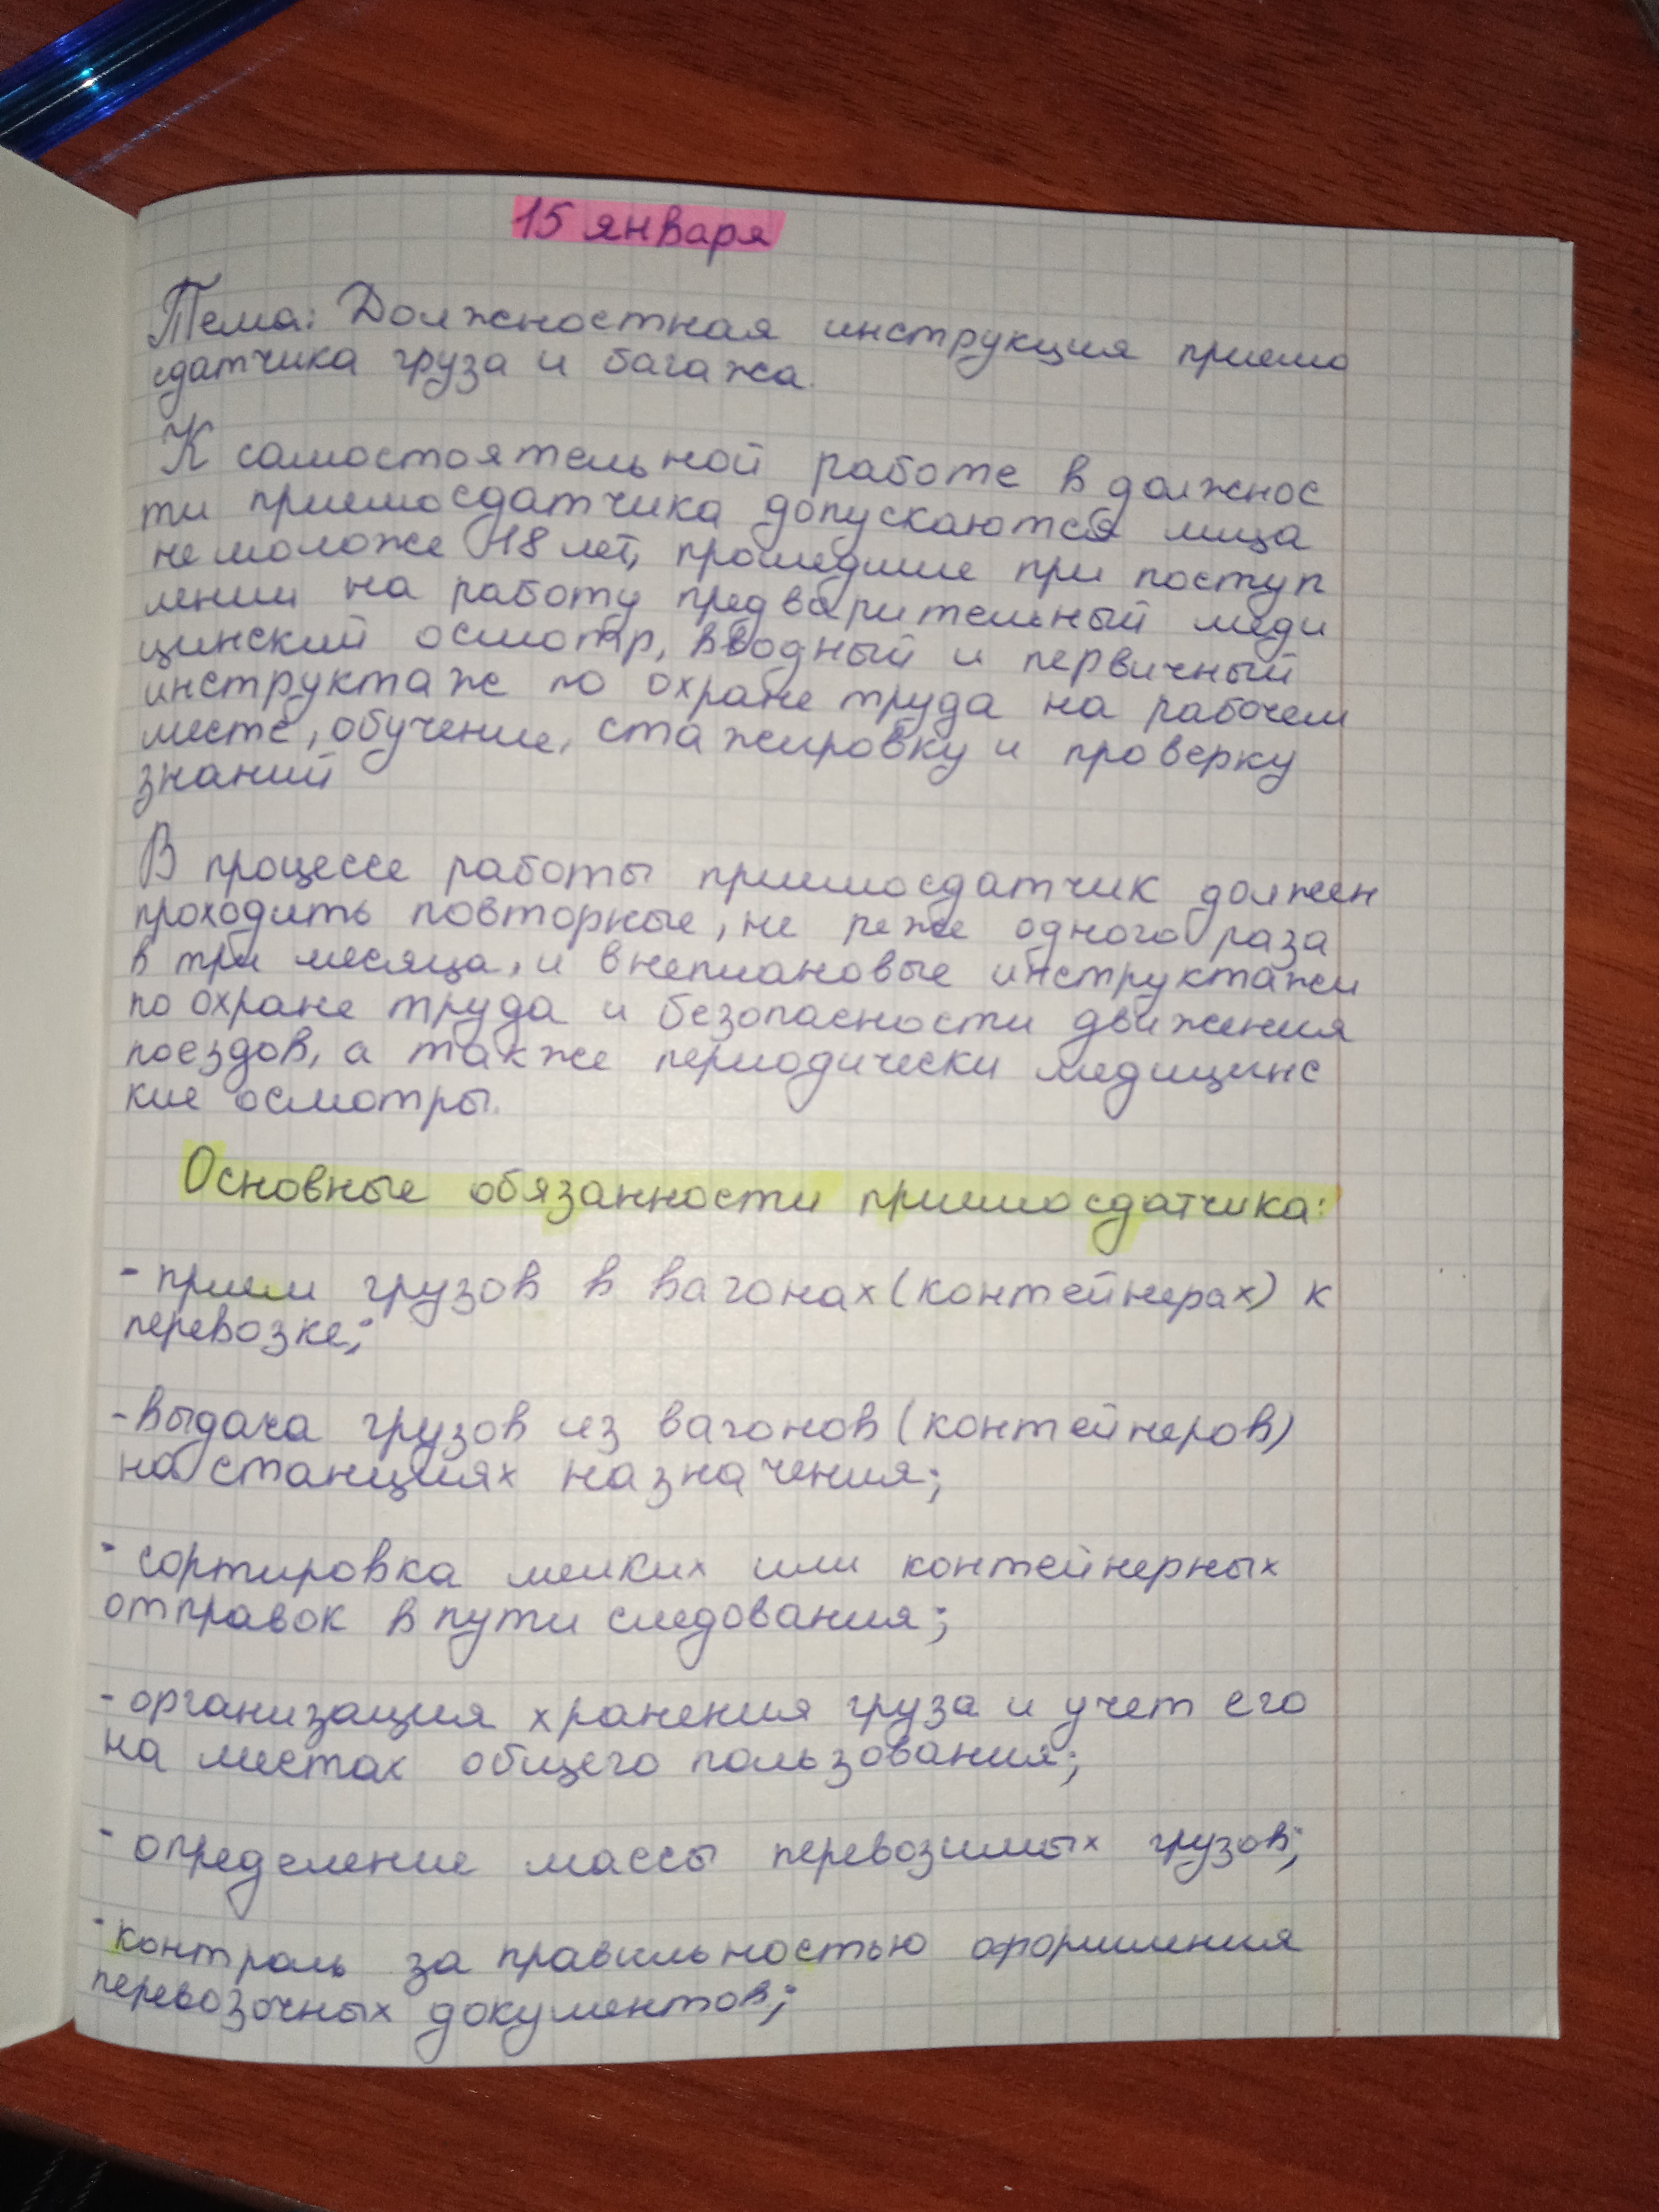 15 января
Тема: Должностная инструкция приемо
сдатчика груза и багажа.
К самостоятельной работе в должнос
ти приемосдатчика допускаются лица
не моложе 18 лет, прошедшие при поступ
лении на работу предварительный меди
цинский осмотр, вводный и первичный
инструктаж по охране труда на рабочем
месте, обучение, стажировку и проверку
знаний
В процессе работы приемосдатчик должен
проходить повторные, не реже одного раза
в три месяца, и внеплановые инструктажи
по охране труда и безопасности движения
поездов, а также периодически медицинс
кие осмотры.
Основные обязанности приемосдатчика:
- прием грузов в вагонах (контейнерах) к
перевозке;
- выдача грузов из вагонов (контейнеров)
на станциях назначения;
- сортировка мелких или контейнерных
отправок в пути следования;
- организация хранения груза и учет его
на местах общего пользования;
- определение массы перевозимых грузов;
- контроль за правильностью оформления
перевозочных документов;